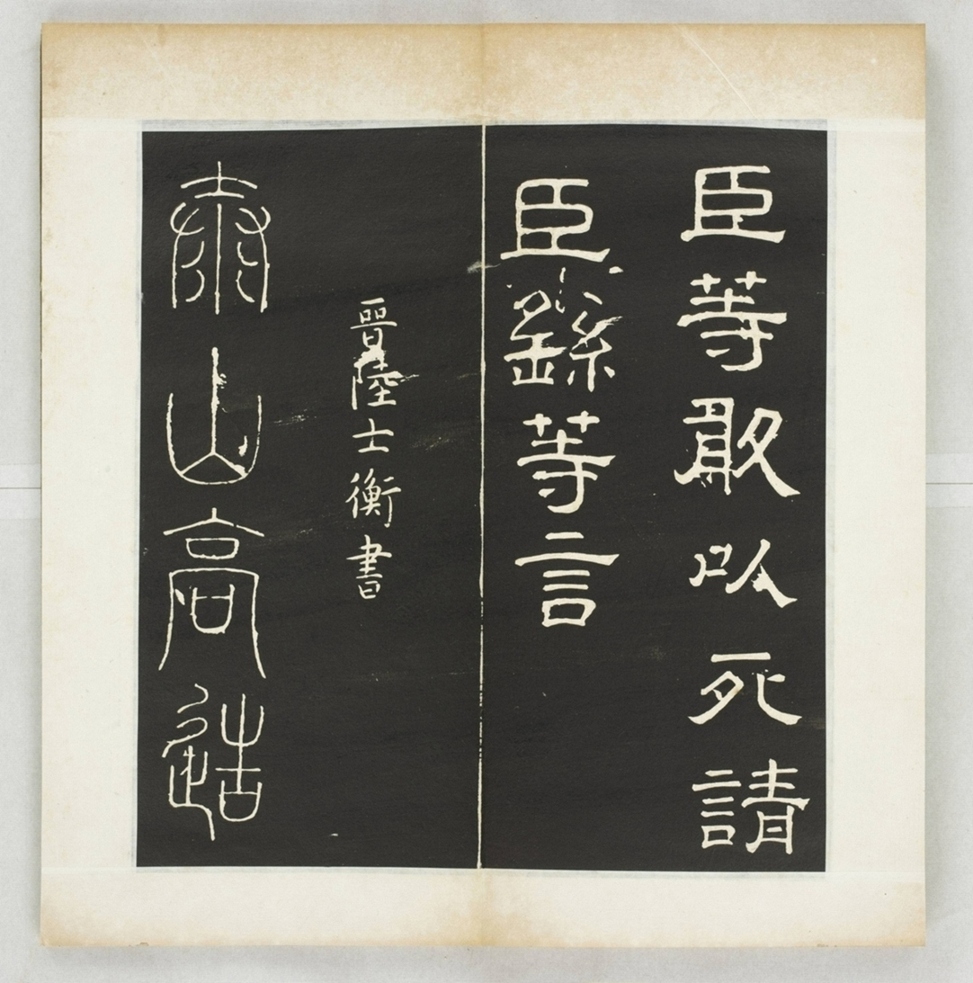 臣等敢以死請
臣繇等言
晉陸士衡書
泰山高造